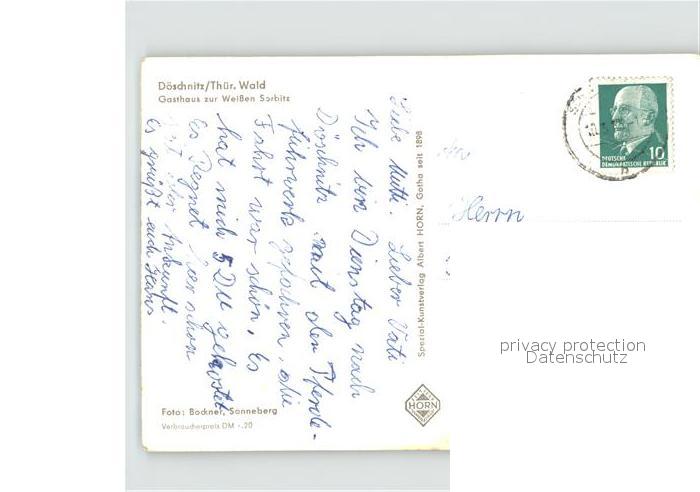 Döschnitz/Thür. Wald
Gasthaus zur Weißen Sorbitz
Liebe Mutti. Lieber Vati
Ich bin Dienstag nach
Döschnitz mit den Pferde-
fuhrwerk gefahren. die
Fahrt war schön, Es
hat mich 5 DM gekostet
Es Regnet hier schon
seit der Ankunft.
Es grüßt euch Hans
Foto: Bockner, Sonneberg
Verbraucherpreis DM -.20
Spezial-Kunstverlag Albert HORN, Gotha seit 1898
HORN
Herrn
DEUTSCHE
DEMOKRATISCHE REPUBLIK
10
privacy protection
Datenschutz